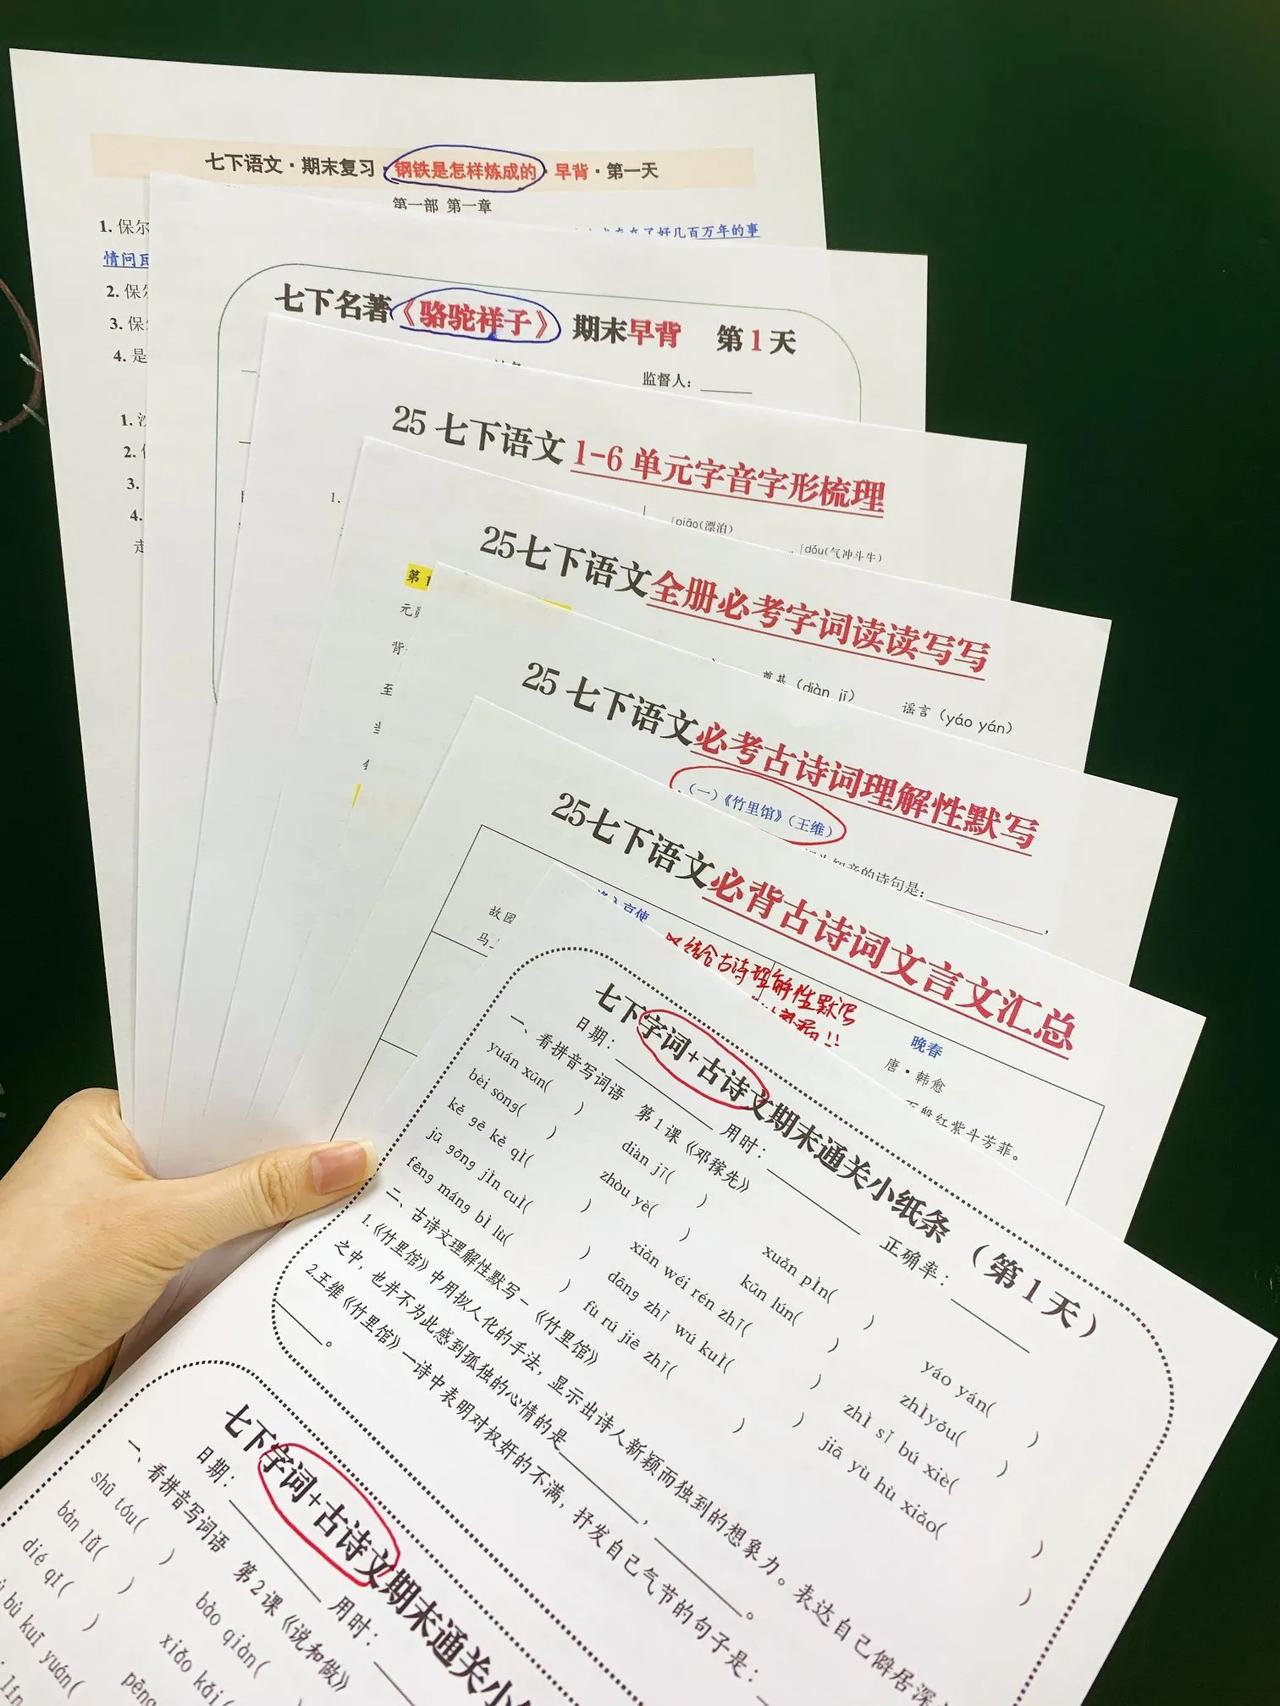 七下语文·期末复习·钢铁是怎样炼成的·早背·第一天
第一部 第一章
1. 保尔
好几百万年的事
情问
2. 保尔
3. 保
4. 是
1.
2.
3.
4.
走
七下名著《骆驼祥子》 期末早背 第1天
监督人：______
25 七下语文 1-6 单元字音字形梳理
1.
piāo(漂泊)
dǒu(气冲斗牛)
25七下语文全册必考字词读读写写
第1
元
背
至
(diàn jī)
谣言 (yáo yán)
25 七下语文必考古诗词理解性默写
(一)《竹里馆》(王维)
的诗句是：______，
25七下语文必背古诗词文言文汇总
故园
马
结合古诗理解性默写
晚春
唐·韩愈
红紫斗芳菲。
七下字词+古诗文期末通关小纸条 (第1天)
日期：______ 用时：______ 正确率：______
一、看拼音写词语 第1课《邓稼先》
yuán xūn( ) diàn jī( ) xuǎn pìn( ) yáo yán(
bèi sòng( ) zhòu yè( ) kūn lún( ) zhìyǒu( )
kě gē kě qì( ) xiān wéi rén zhī( ) zhì sǐ bú xiè( )
jū gōng jìn cuì( ) dāng zhī wú kuì( ) jiā yù hù xiǎo( )
fēng máng bì lù( ) fù rú jiē zhī( )
二、古诗文理解性默写-《竹里馆》
1.《竹里馆》中用拟人化的手法，显示出诗人新颖而独到的想象力。表达自己僻居深
之中，也并不为此感到孤独的心情的是______，______。
2.王维《竹里馆》一诗中表明对权奸的不满，抒发自己气节的句子是：
______。
七下字词+古诗文期末通关小
日期：______ 用时：
一、看拼音写词语 第2课《说和做》
shū tóu( ) bào qiàn(
bǎn lǔ( ) xiǎo kǎi(
dié qǐ( ) pēng
bù kuī yuán(